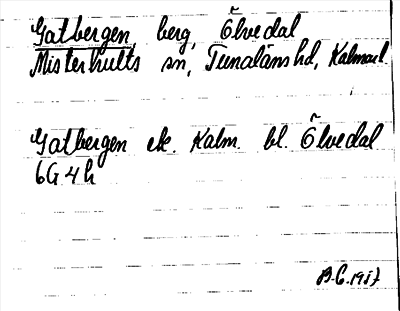 Gatbergen, berg, Älvedal
Misterhults sn, Tunaläns hd, Kalmar l.
Gatbergen ek. Kalm. bl. Älvedal
6G4h
B.G. 1957